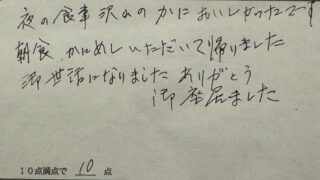 夜の食事沢山のかにおいしかったです
朝食、かにめしいただいて帰りました
御世話になりました ありがとう
御座居ました
10点満点で 10 点